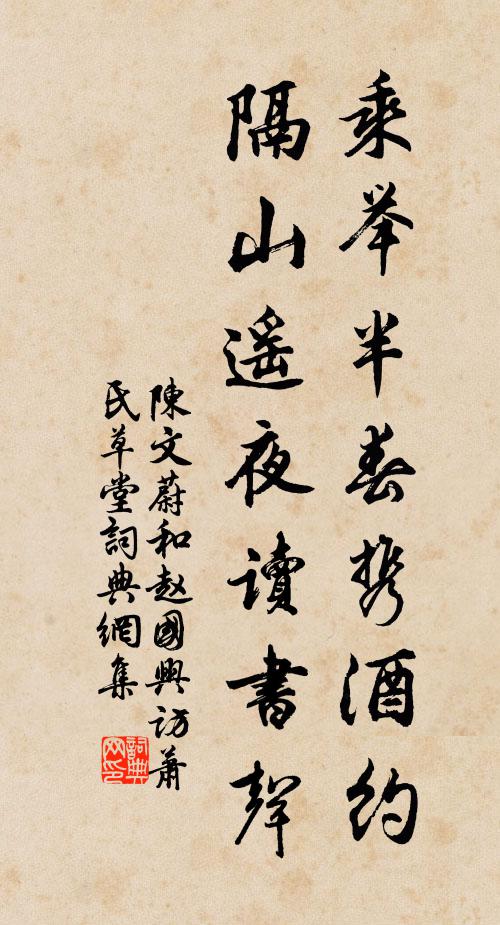 乘举半春携酒约
隔山遥夜读書聲
陳文蔚和赵國興訪蕭
民草堂詞典網集
詞典网印